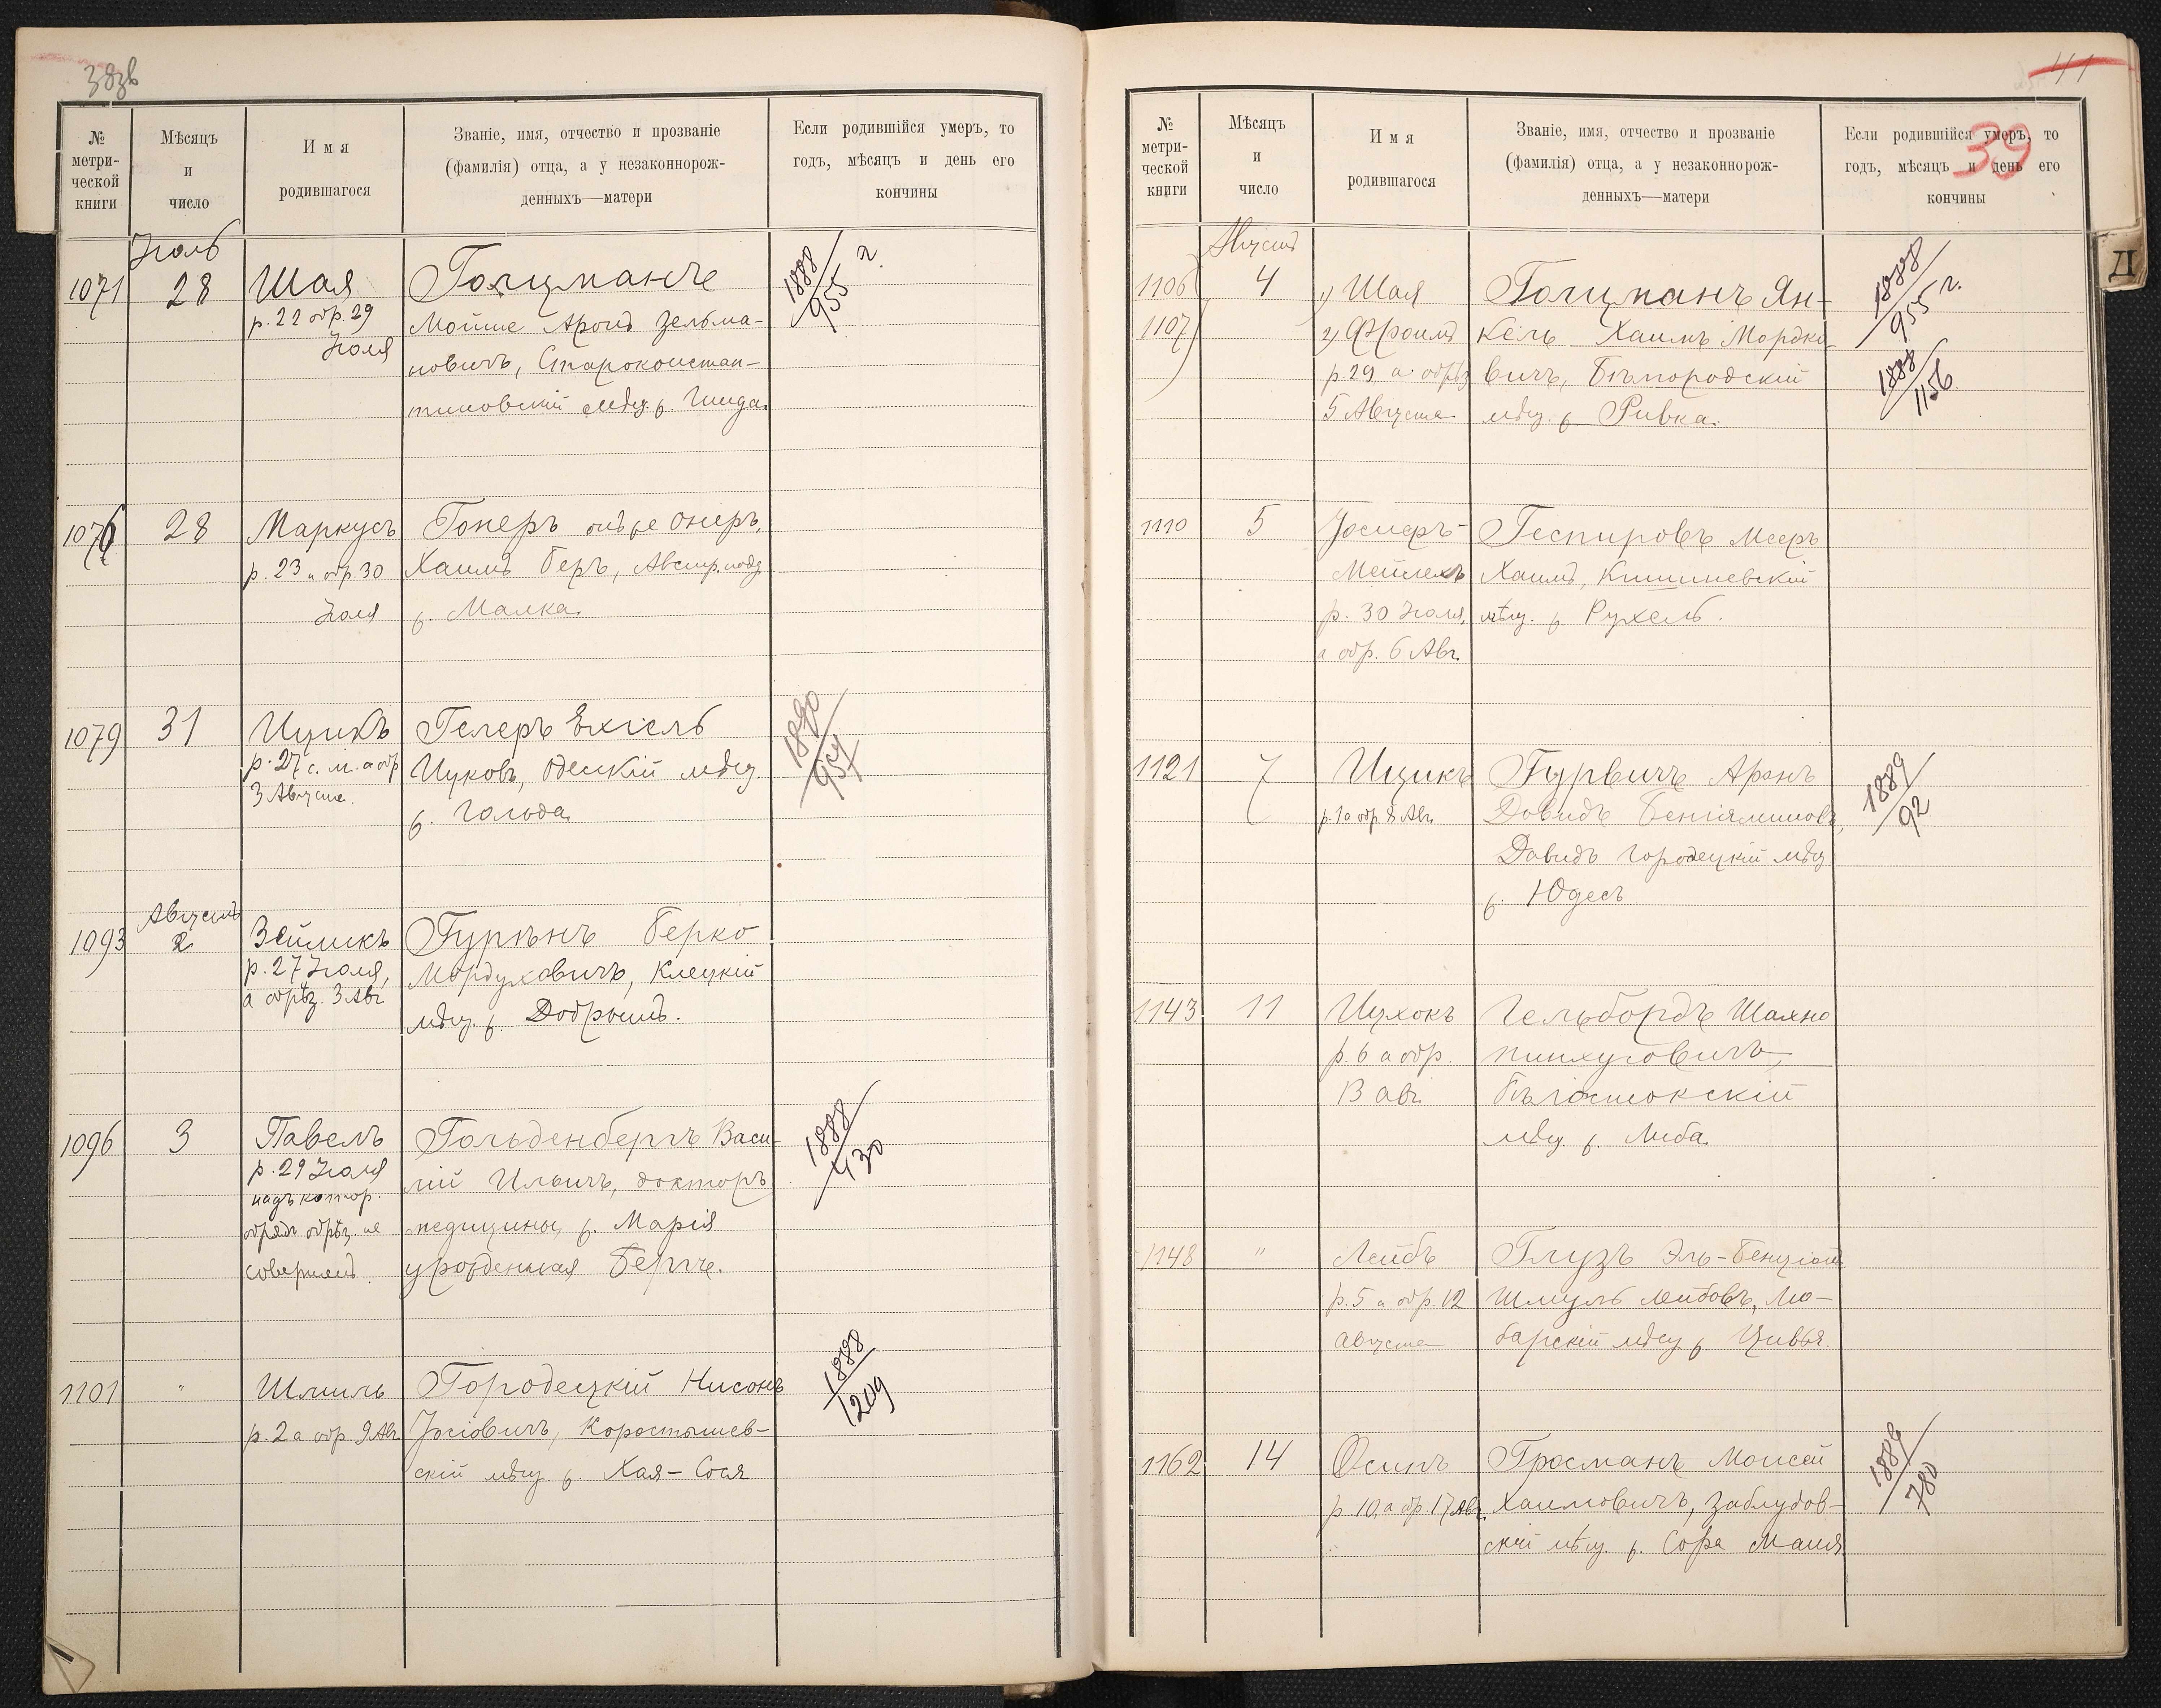 38зв
№ метрической книги
Мѣсяцъ и число
Имя родившагося
Званіе, имя, отчество и прозваніе
(фамилія) отца, а у незаконнорож-
денныхъ—матери
Если родившійся умеръ, то
годъ, мѣсяцъ и день его
кончины
Іюль
1071 28 Шая Гольцманъ 1888/955 г.
р. 22 обр. 29 Мойше Аронъ Зельма-
Іюля новичъ, Староконстан-
тиновскій мѣщ. ж.
1076 28 Маркусъ Гонеръ онъ же Онеръ,
р. 23 и обр. 30 Хаимъ Беръ, Австр. подд.
Іюля ж. Малка.
1079 31 Ицикъ Гелеръ Ехіель 1890/957
р. 27 с. м. а обр. Ицковъ, Одесскій мѣщ.
3 Августа. ж. Гольда.
Августъ
1093 2 Зейликъ Гурѣнъ Берко
р. 27 Іюля, Мордуховичъ, Клецкій
а обрѣз. 3 Авг. мѣщ. ж. Добрышъ.
1096 3 Павелъ Гольденбергъ Васи- 1888/430
р. 29 Іюля лій Ильичъ, докторъ
надъ котор. медицины, ж. Марія
обрядъ обрѣз. не урожденная Бергъ.
совершенъ.
1101 " Шмиль Городецкій Нисонъ 1888/1209
р. 2 а обр. 9 Авг. Іосіовичъ, Коростышев-
скій мѣщ. ж. Хая-Сося
41
39
№ метрической книги
Мѣсяцъ и число
Имя родившагося
Званіе, имя, отчество и прозваніе
(фамилія) отца, а у незаконнорож-
денныхъ—матери
Если родившійся умеръ, то
годъ, мѣсяцъ и день его
кончины
Д
Августъ
1106 4 1) Шая Гольцманъ Ян- 1888/955 г.
1107 2) Фроимъ кель Хаимъ Мордко-
р. 29, а обрѣз. вичъ, Бѣлгородскій 1888/1156
5 Августа мѣщ. ж. Ривка.
1110 5 Іосифъ- Геспировъ Мееръ
Мейлехъ Хаимъ, Кишиневскій
р. 30 Іюля, мѣщ. ж. Рухель.
а обр. 6 Авг.
1121 7 Ицикъ Гурвичъ Аронъ 1889/92
р. 1 а обр. 8 Авг. Довидъ Беніяминовъ,
Давидъ Городецкій мѣщ.
ж. Юдесъ
1143 11 Ицхокъ Гельбордъ Шахно
р. 6 а обр. Пинхусовичъ,
13 авг. Бѣлостокскій
мѣщ. ж. Либа.
1148 " Лейбъ Глузъ Эль-Бенціонъ
р. 5 а обр. 12 Шмуль Лейбовъ, Лю-
августа барскій мѣщ. ж. Цивья.
1162 14 Осипъ Гросманъ Моисей 1889/780
р. 10, а обр. 17 Авг. Хаимовичъ, Заблудов-
скій мѣщ. ж. Сора Маля